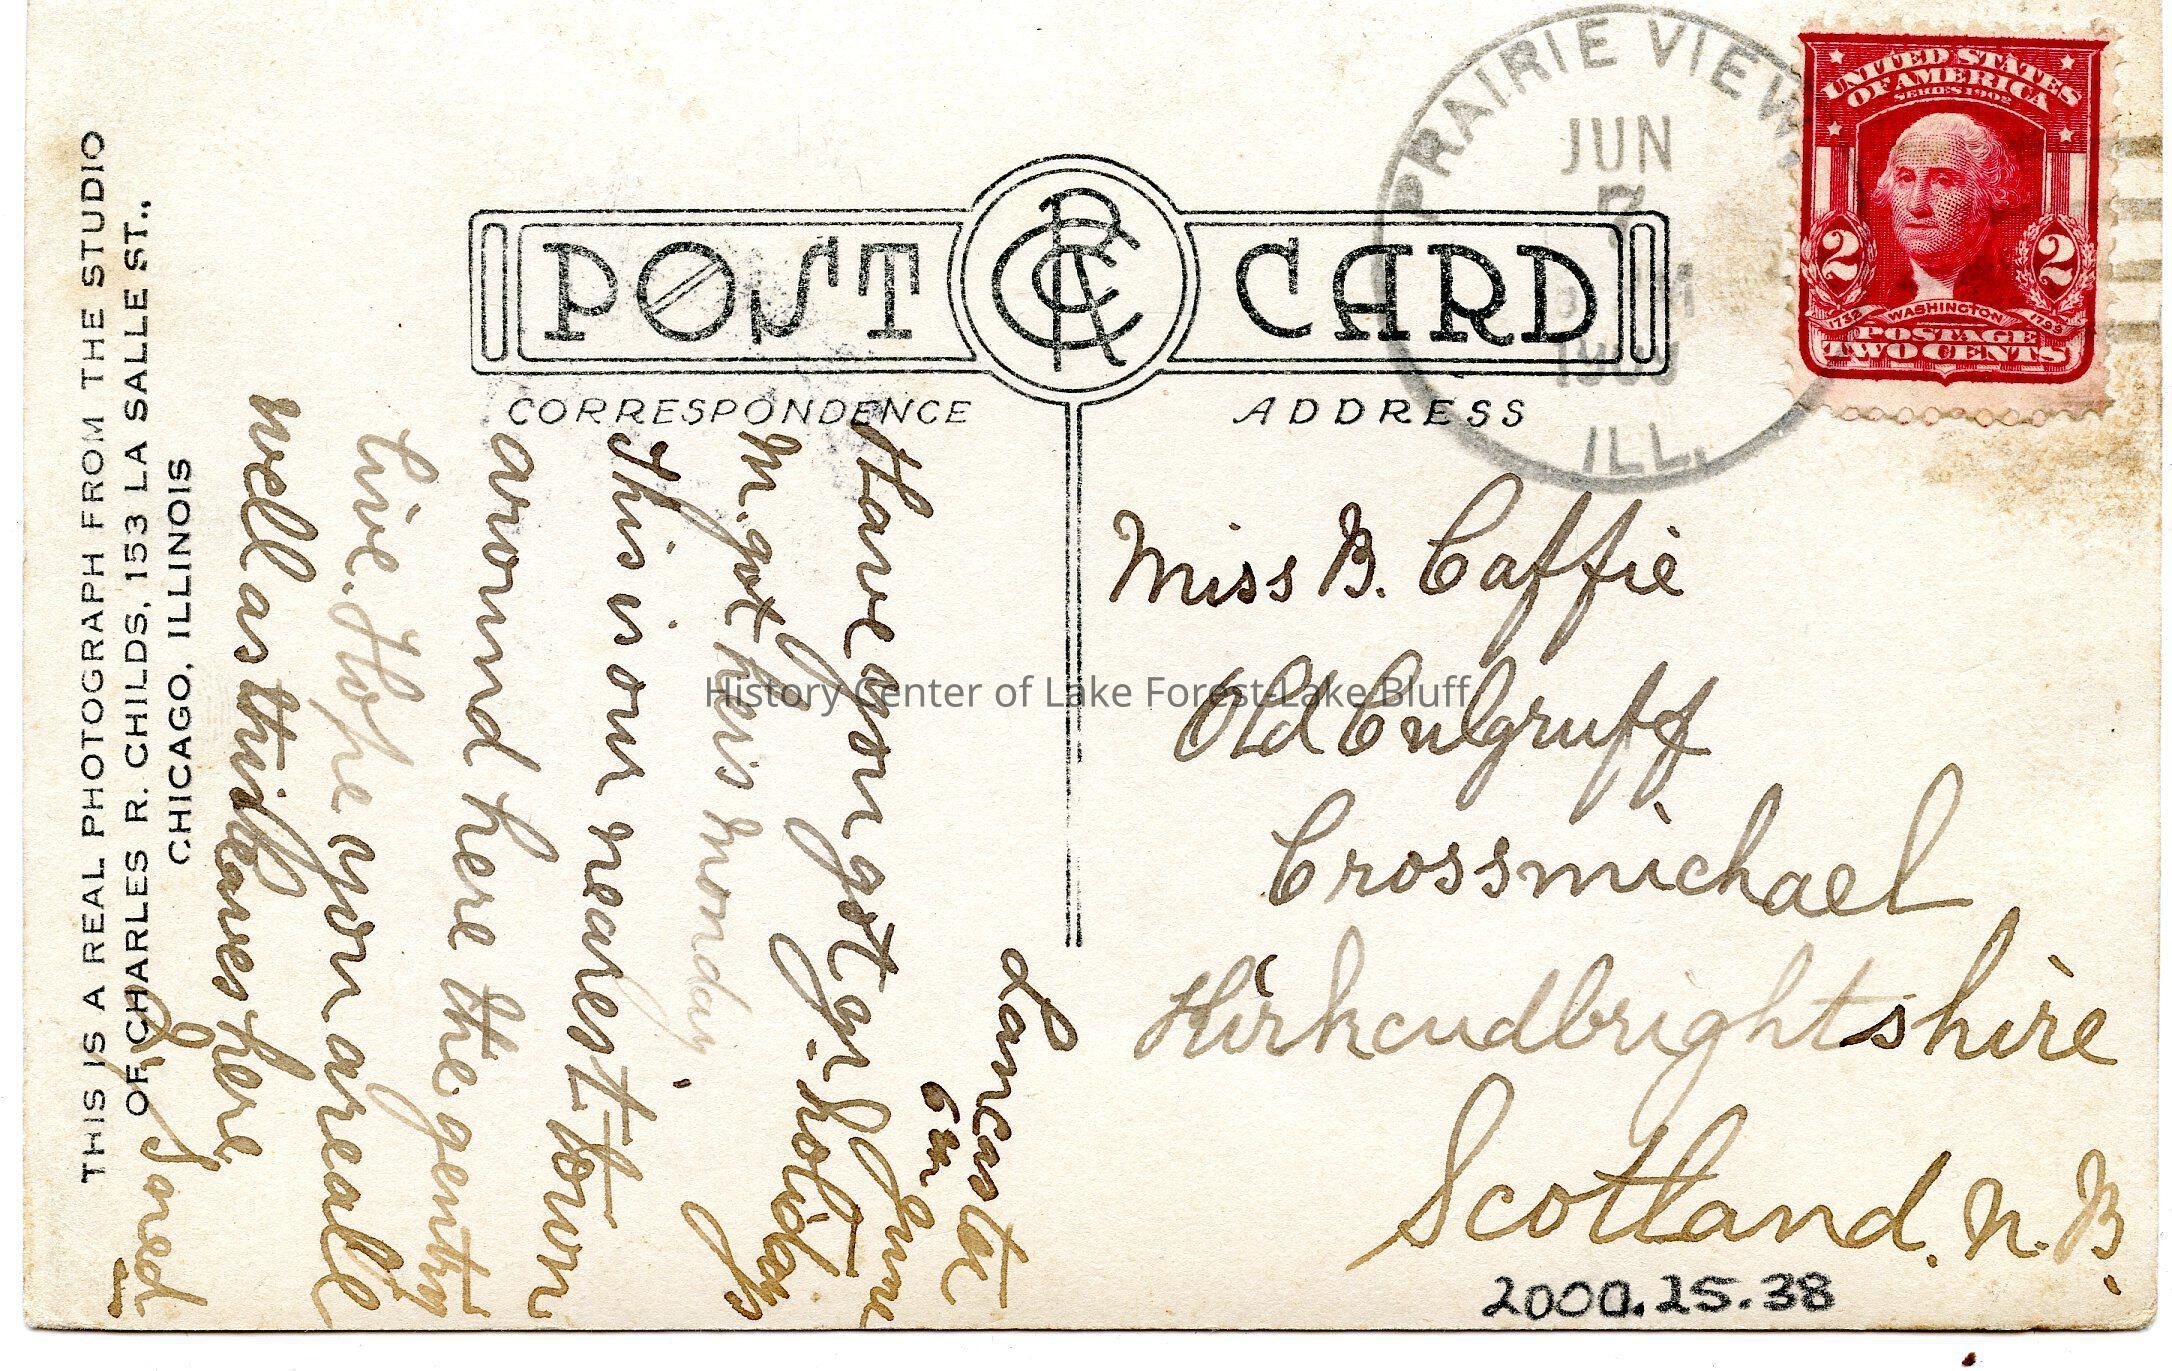 PRAIRIE VIEW
JUN
7
ILL.
UNITED STATES
OF AMERICA
SERIES 1902
2 2
1732 WASHINGTON 1799
POSTAGE
TWO CENTS
POST CARD
CRC
CORRESPONDENCE
ADDRESS
THIS IS A REAL PHOTOGRAPH FROM THE STUDIO
OF CHARLES R. CHILDS, 153 LA SALLE ST.,
CHICAGO, ILLINOIS
Lancaster
6 June
Have you got yr. holidays
M. got hers monday,
This is our nearest. town
around here the. gentry
live. Hope you are all
well as this leaves here
Miss B. Caffie
Old Culgruff
Crossmichael
Kirkcudbrightshire
Scotland. N. B.
2000.25.38
History Center of Lake Forest-Lake Bluff